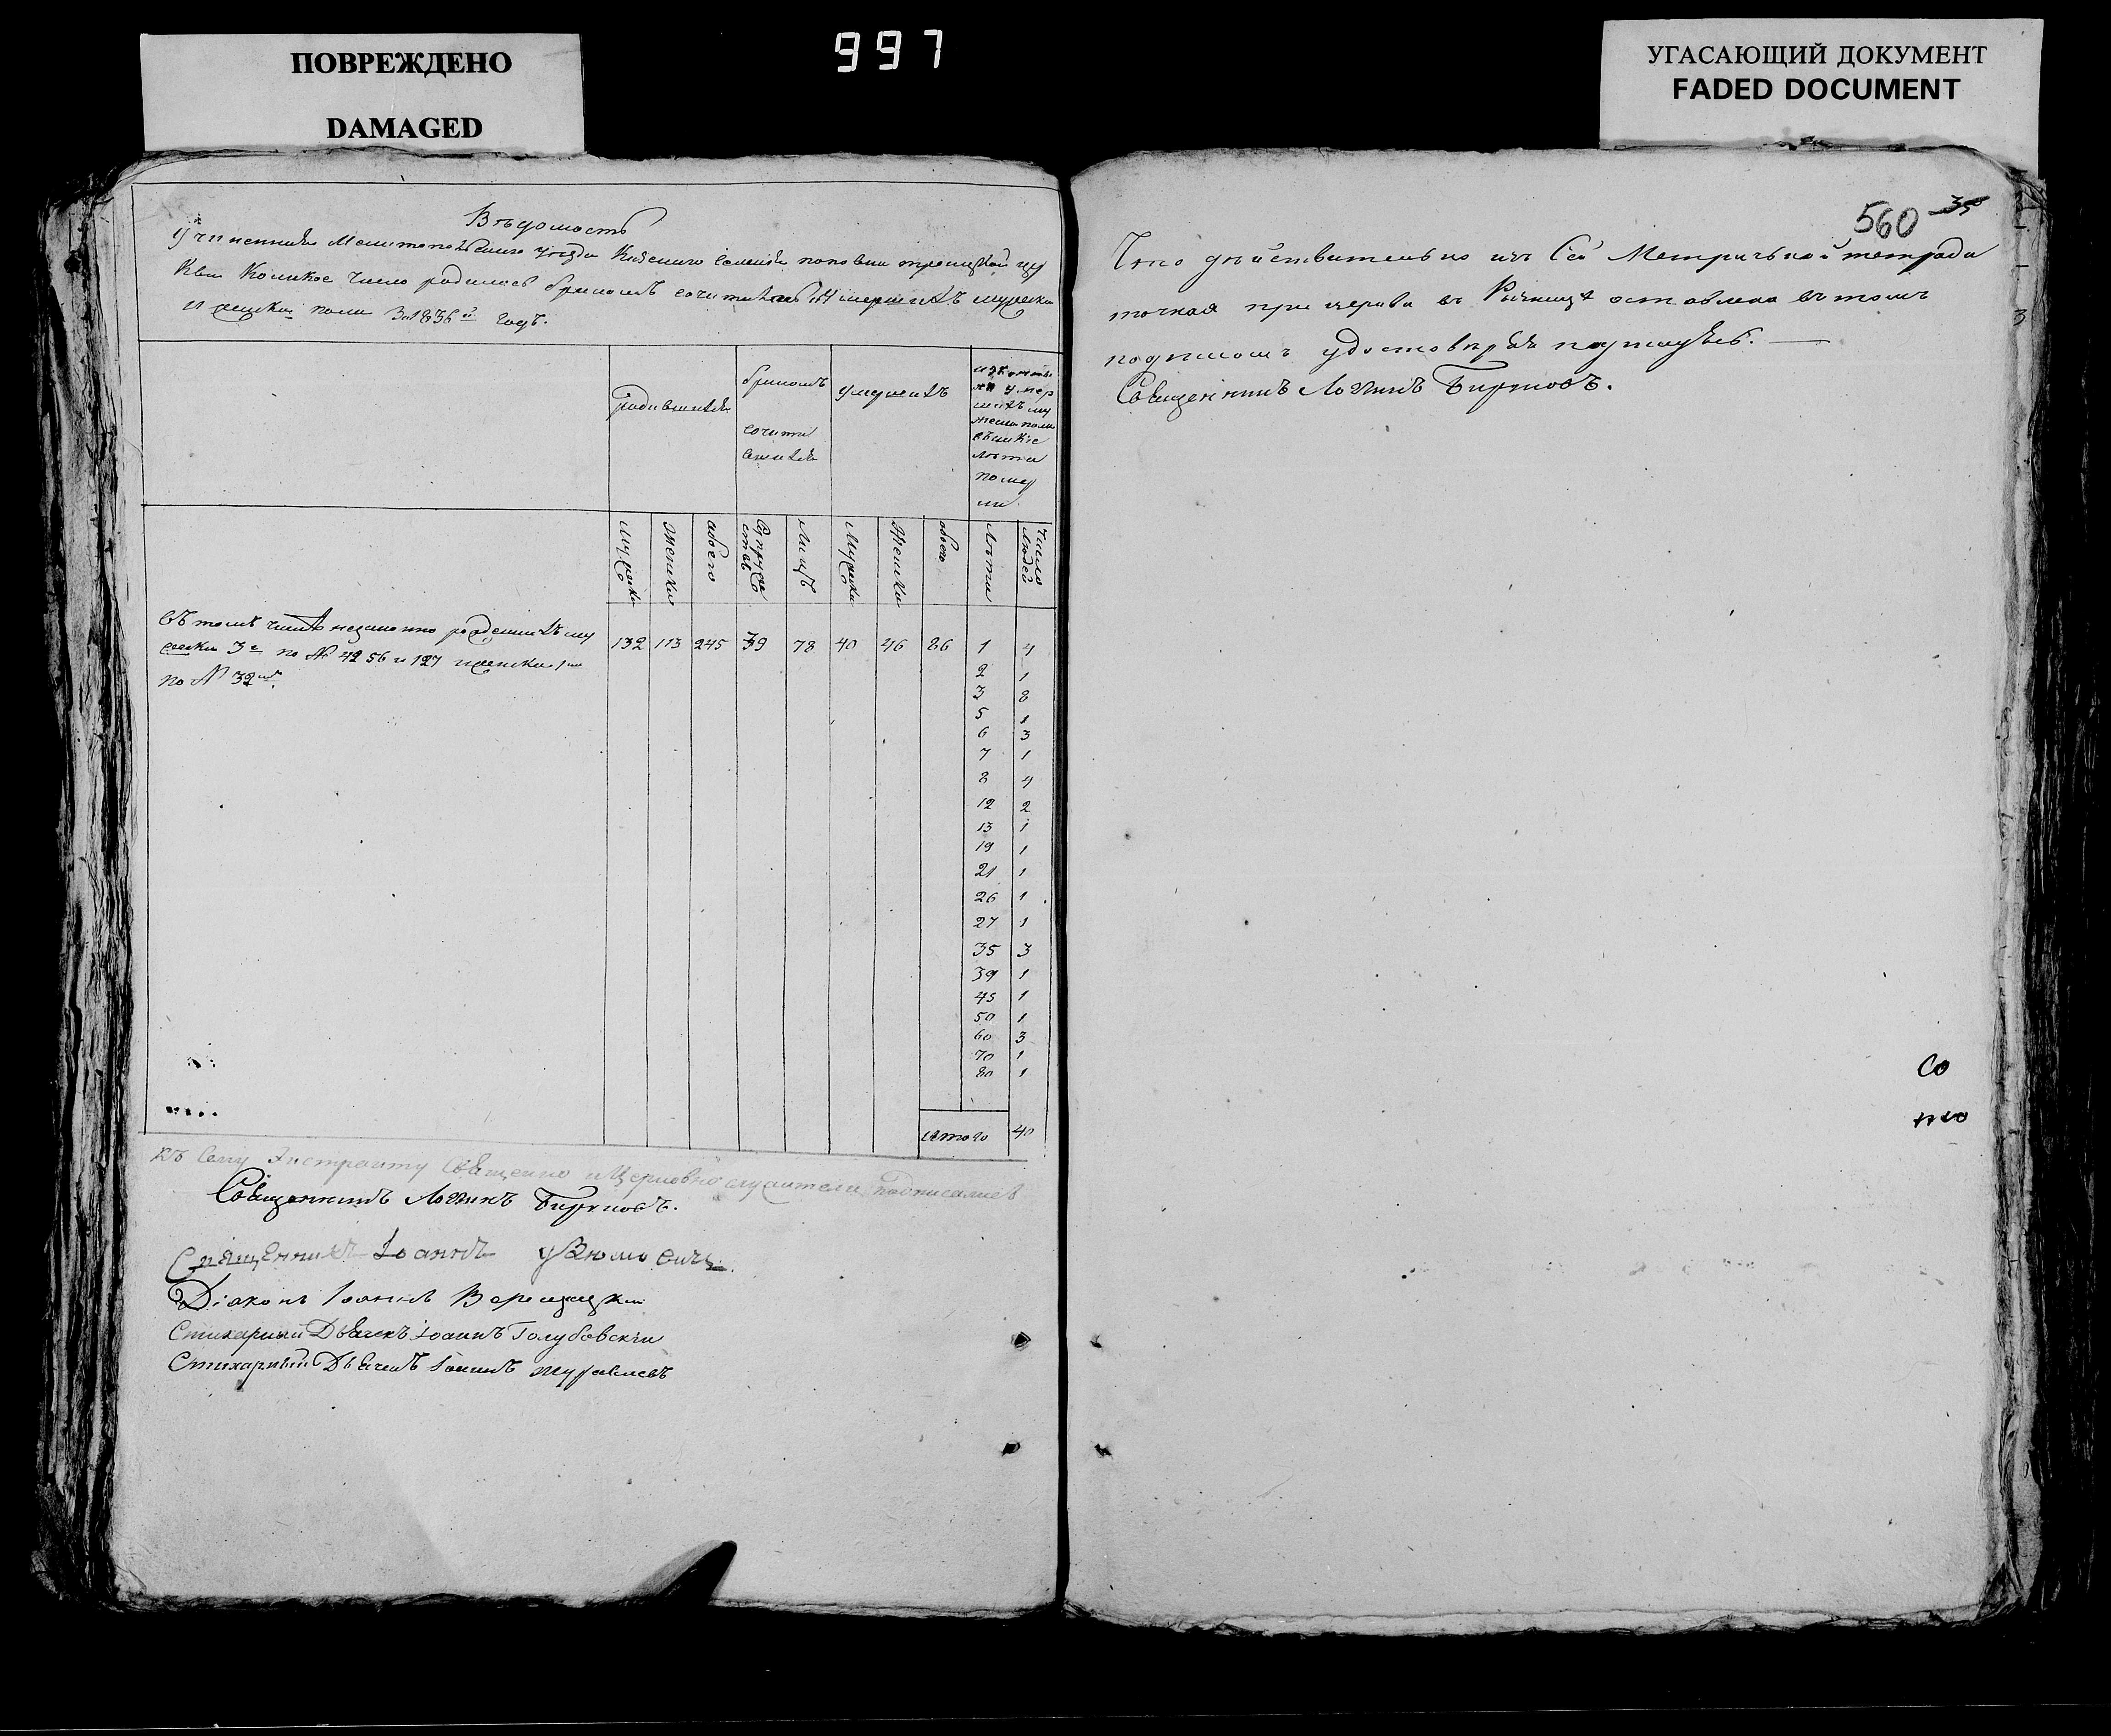 ПОВРЕЖДЕНО
DAMAGED
997
УГАСАЮЩИЙ ДОКУМЕНТ
FADED DOCUMENT
Вѣдомость
Учиненная Мелитопольскаго уѣзда селенія поповки троицкой це
Кви Коликое число родилось бракомъ сочиталось и умершихъ мужска
и женска пола За 1836й годъ.
родившихся
бракомъ
сочета
вшихся
умершихъ
изъ
умер
шихъ му
жеска пола
лѣта
помер
ли
мужска
женска
обоего
Супруже
ствъ
Лицъ
мужска
женска
обоего
Лѣта
Число
Людей
Въ томъ числѣ незаконно рожденныхъ му
жска 3е по № 42 56 и 127 женска 1
по № 32
132 113 245 39 78 40 46 86 1 4
2 1
3 8
5 1
6 3
7 1
8 4
12 2
13 1
19 1
21 1
26 1
27 1
35 3
39 1
45 1
50 1
60 3
70 1
80 1
итого 40
къ сему Экстракту Священно и Церковно служители подписались
Священникъ Логинъ Бируковъ.
Священникъ Іоаннъ
Діаконъ Іоаннъ
Стихарный Дьячекъ Іоаннъ Голубовскій
Стихарный Дьячекъ Іоаннъ Журавлевъ
560 35
Что дѣйствительно изъ Сей Метричьной тетради
точная при церкви въ Ризницѣ оставлена въ томъ
подписомъ удостовѣряя подпишусь.
Священникъ Логинъ Бируковъ.
со